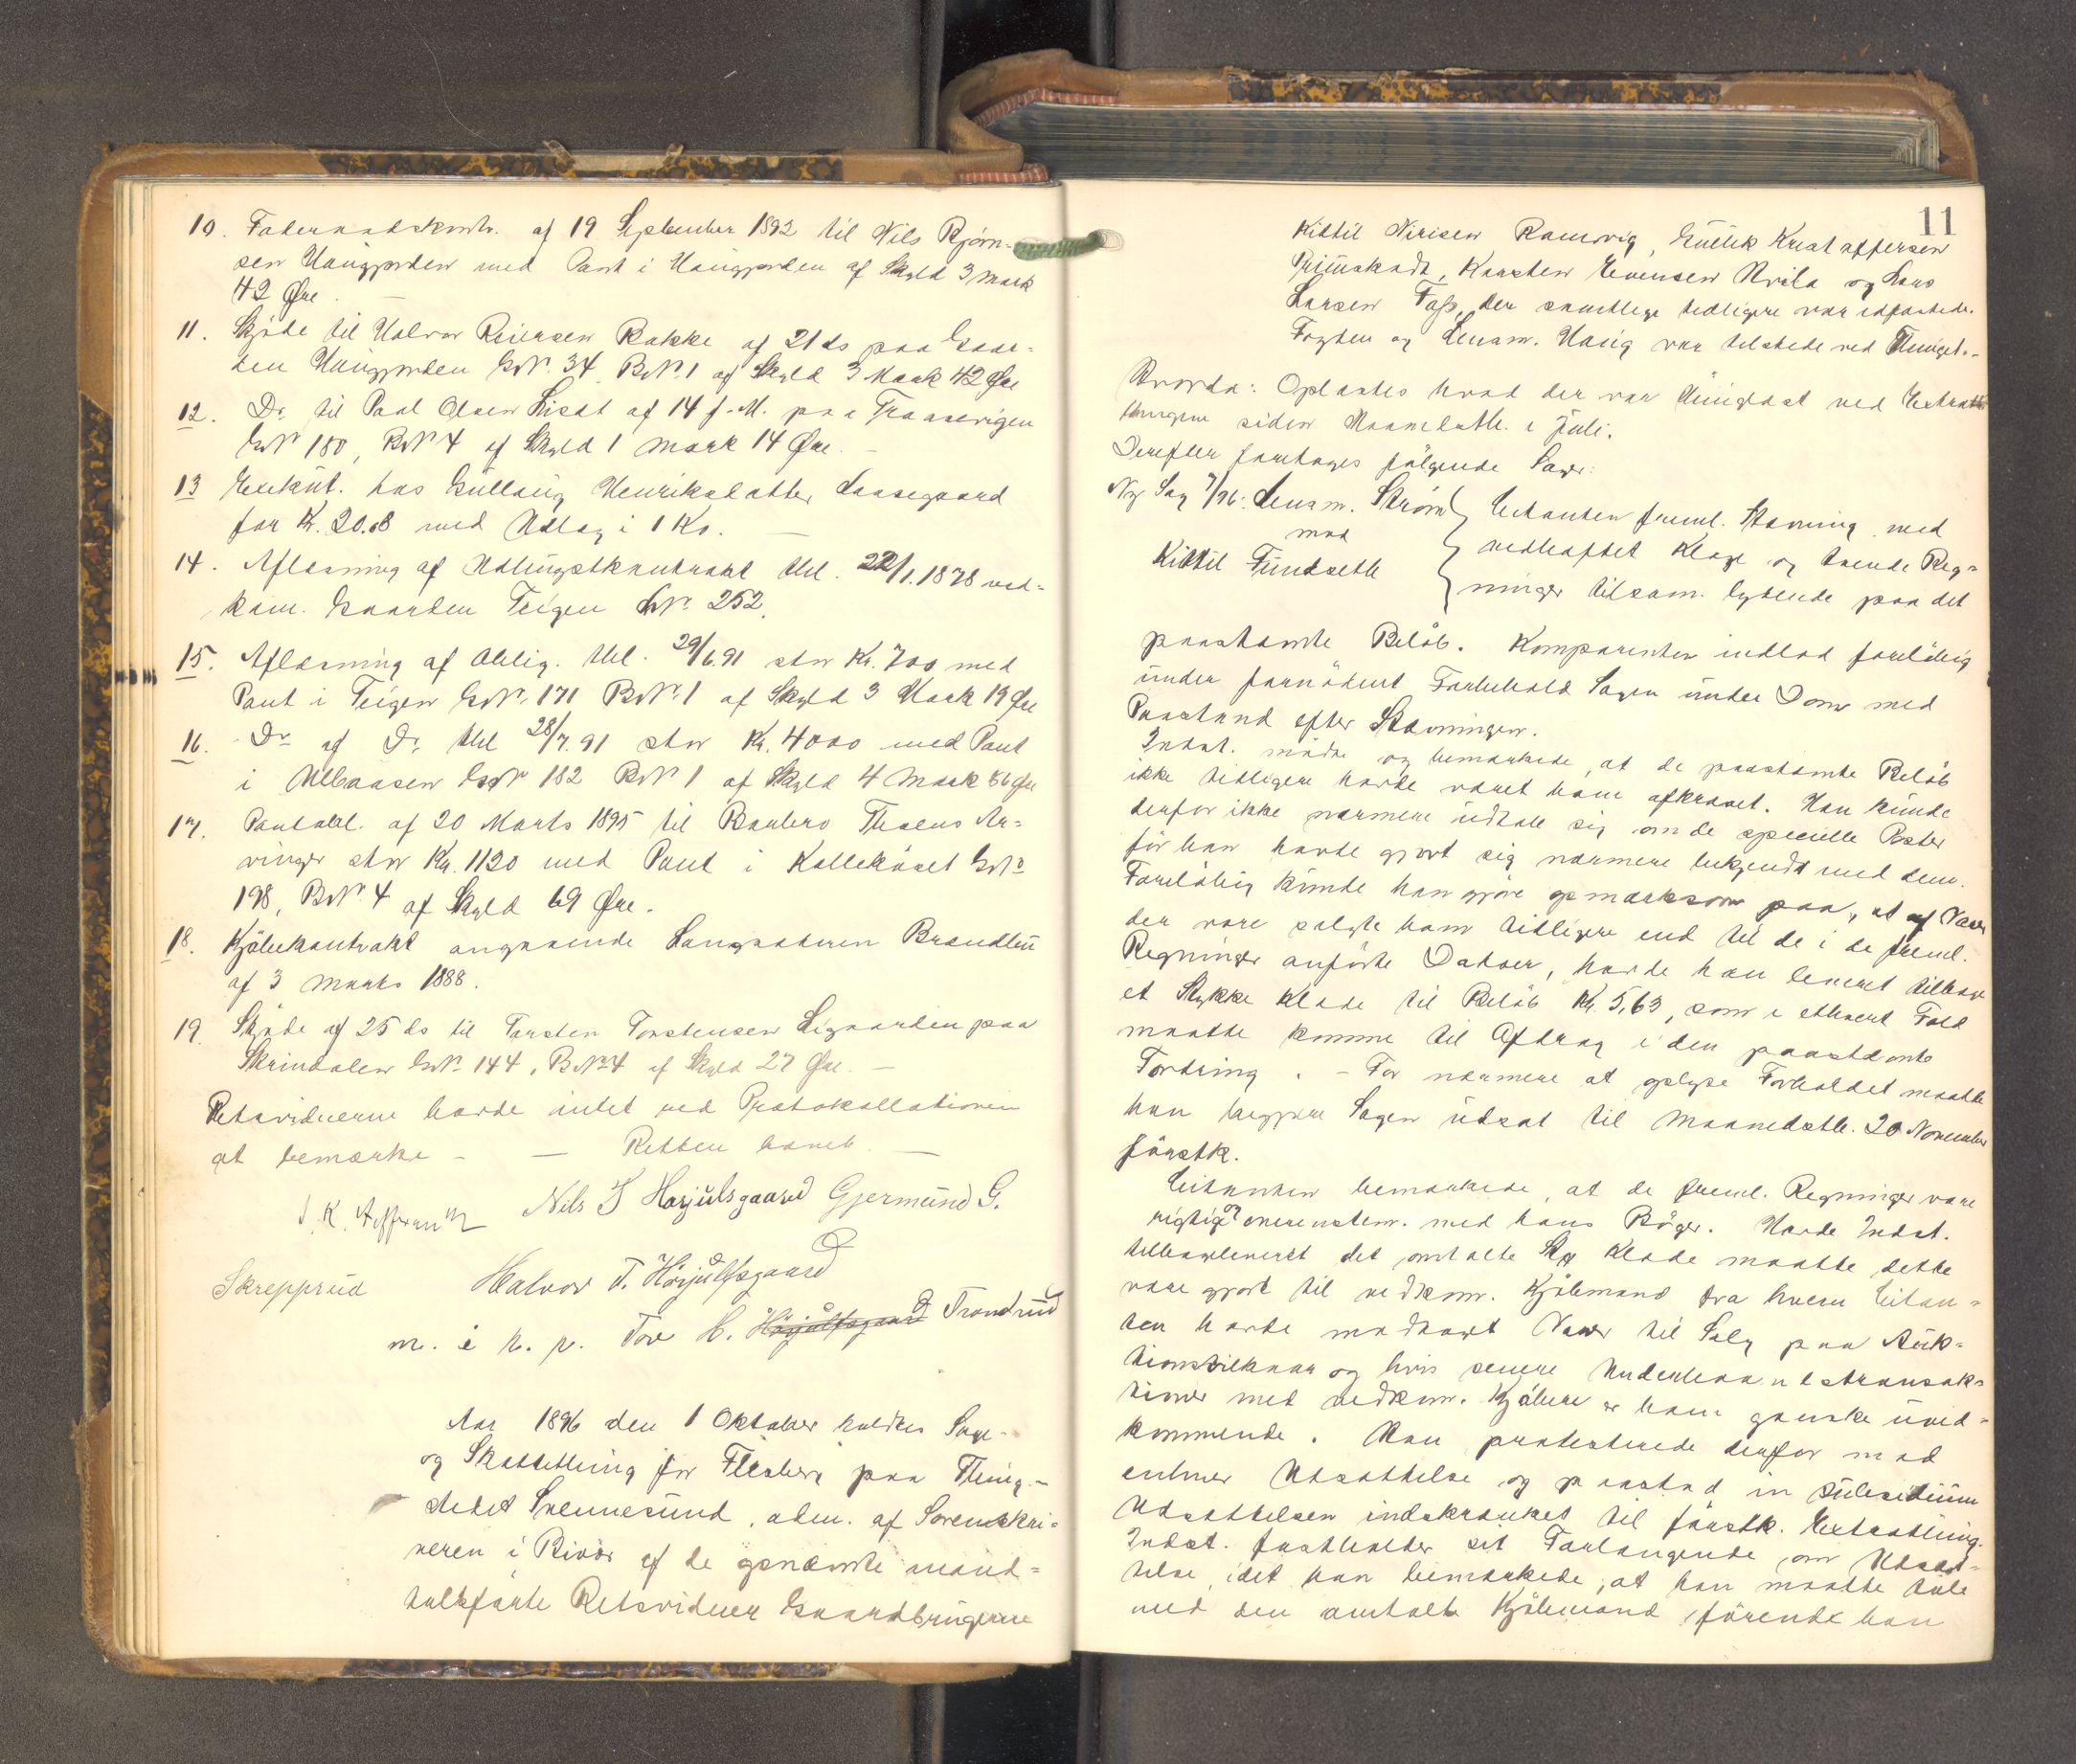 10. Foderaadskontr. af 19 September 1892 til Nils Bjørn-
sen Haugjorden med Pant i Haugjorden af Skyld 3 Mark
42 Øre. —
11. Skjøde til Halvor Reiersen Bakke af 21 ds paa Gaar-
den Haugjorden GNr. 34 BNr. 1 af Skyld 3 Mark 42 Øre
12. Do. til Paul Olsen Liset af 14 f. M. paa
GNr 180, BNr 4 af Skyld 1 Mark 14 Øre. —
13 Exekut. hos Gullaug Henriksdatter Laasegaard
for Kr. 20.08 med Udlæg i 1 Ko. —
14. Aflæsning af Udlugstkontrakt thl. 22/1.1878 ved-
kom. Gaarden Teigen LNr. 252.
15. Aflæsning af Oblig. thl. 29/6.91 stor Kr. 700 med
Pant i Teigen GNr. 171 BNr. 1 af Skyld 3 Mark 19 Øre
16. Do af Do. thl 28/7.91 stor Kr. 4000 med Pant
i Ulbaasen GNr 182 BNr 1 af Skyld 4 Mark 56 Øre
17. Pantobl. af 20 Marts 1895 til Barbro Thoens Ar-
vinger stor Kr. 1120 med Pant i Kallekåset GNo
198, BNr. 4 af Skyld 69 Øre.
18. Kjøbekontrakt angaaende Langsæteren Brændlia
af 3 Marts 1888.
19. Skjøde af 25 ds til Torsten Torstensen Ligaarden paa
Skrindalen GNr. 144, BNr 4 af Skyld 27 Øre. —
Retsvidnerne havde intet ved Protokollationen
at bemærke — — Retten hævet. —
Nils T Hørjulsgaard Gjermund G.
Skrepprud Halvor T. Hørjulfsgaard
m. i h. p. Tore H. Hørjulfsgaard Trondrud
Aar 1896 den 1 Oktober holdtes Sage-
og Skattething for Flesberg paa Thing-
stedet Svennesund, adm. af Sorenskri-
veren i Bivær af de opnævnte mand-
talsførte Retsvidner Gaardbrugerne
11
Kittil Nirisen Ramvig, Gullik Kristoffersen
Priimskadt, Karsten Evensen Hvila og Lars
Larsen Foss, der samtlige tidligere var edfæstede.
Fogden og Lensm. Haug var tilstede ved Thinget. —
Hvorda: Oplæstes hvad der var thinglæst ved Extrath-
thingene siden Maanedsth. i Juli.
Derefter foretoges følgende Sager:
Ny Sag 7/96. Lensm. Strøm
mod
Kittil Fundseth
Citanten freml. Stævning med
vedhæftet Klage og tvende Reg-
ninger tilsam. lydende paa det
paastævnte Beløb. Komparenten indlod foreløbig
under fornødent Forbehold Sagen under Dom med
Paastand efter Stævningen.
Indst. mødte og bemærkede, at de paastævnte Beløb
ikke tidligere havde været ham afkrævet. Han kunde
derfor ikke nærmere udtale sig om de specielle Poster
før han havde gjort sig nærmere bekjendt med dem.
Foreløbig kunde han gjøre opmærksom paa, at af Varer
der vare solgte ham tidligere end til de i de freml.
Regninger anførte Datoer, havde han leveret tilbage
et Stykke Klæde til Beløb Kr. 5,63, som i ethvert Fald
maatte komme til Afdrag i den paastævnte
Fordring. — For nærmere at oplyse Forholdet maatte
han begjære Sagen udsat til Maanedsth. 20 November
førstk.
Citanten bemærkede, at de freml. Regninger vare
rigtige og overenstem. med hans Bøger. Havde Indst.
tilbageleveret det omtalte Stk Klæde maatte dette
være gjort til vedkom. Kjøbmand fra hvem Citan-
ten havde modtaget Varer til Salg paa Auk-
tionsvilkaar og hvis senere Underhaandstransak-
tioner med vedkom. Kjøbere er ham ganske uved-
kommende. Han protesterede derfor mod
enhver Udsættelse og paastod in subsidium
Udsættelsen indskrænket til førstk. Extrathing.
Indst. fastholder sit Forlangende om Udsæt-
telse, idet han bemærkede, at han maatte tale
med den omtalte Kjøbmand, førend han